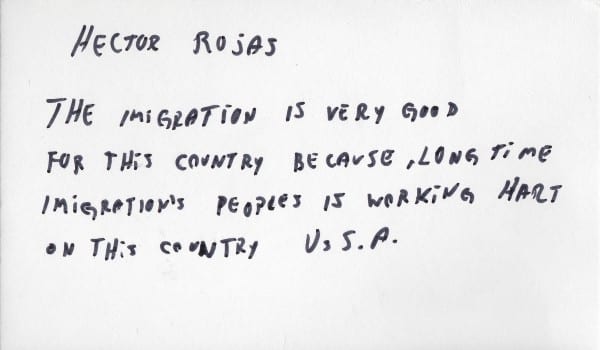 HECTOR ROJAS
THE IMIGRATION IS VERY GOOD
FOR THIS COUNTRY BECAUSE, LONG TIME
IMIGRATION'S PEOPLES IS WORKING HART
ON THIS COUNTRY U.S.A.